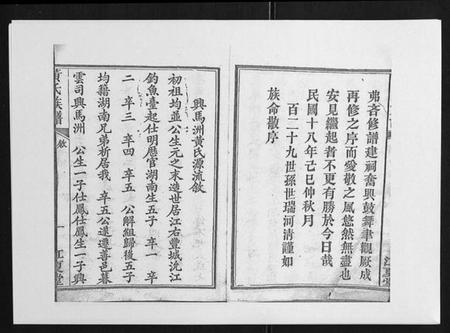 弗吝修譜建祠奮興鼓舞聿觀厥成
再修之序而愛敬之風悠然無盡也
安見繼起者不更有勝於今日哉
民國十八年己巳仲秋月
百二十九世孫世瑞河清謹如
族命敬序
江夏堂
黃氏族譜
敘
一
江夏堂
興馬洲黃氏源流敘
初祖均並公生元之末造世居江右豐城沇江
釣魚臺起仕明歷官湖南生五子 卒一 卒
二 卒三 卒四 卒五 公解組歸後五子
均籍湖南兄弟析居我 卒五公遣遷善邑暮
雲司興馬洲 公生一子仕鳳仕鳳生一子興